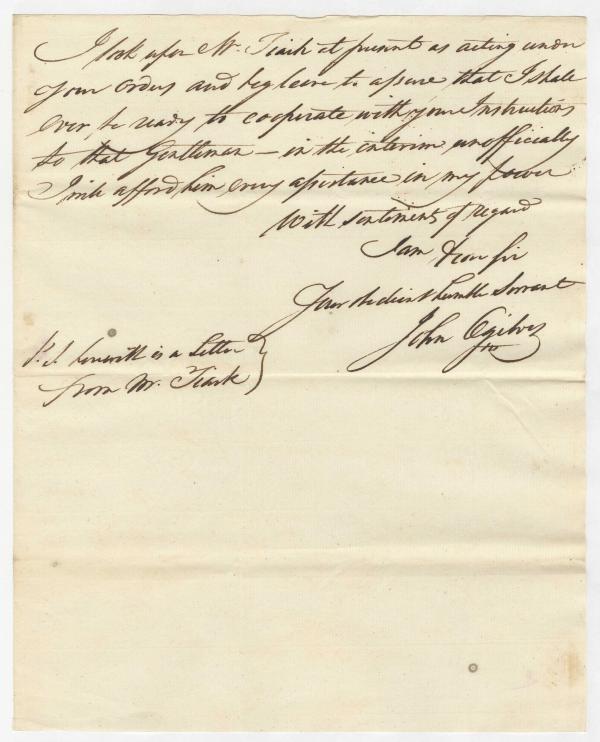 I look upon Mr. Tiark at present as acting under
your orders and beg leave to assure that I shall
ever be ready to cooperate with your Instructions
to that Gentleman — in the interim unofficially
I will afford him every assistance in my power
With sentiments of regard
I am Dear Sir
Your obedient humble Servant
John Ogilvy
P.S. herewith is a Letter
from Mr. Tiark